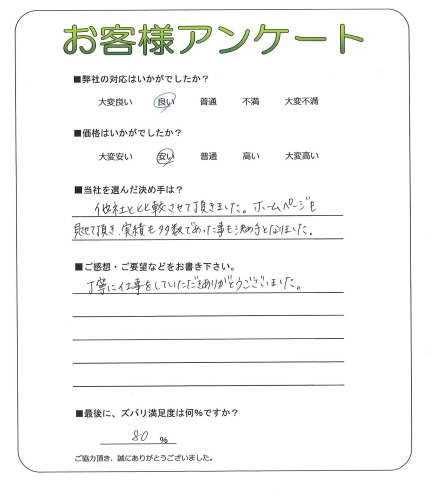 お客様アンケート
■弊社の対応はいかがでしたか？
大変良い 良い 普通 不満 大変不満
■価格はいかがでしたか？
大変安い 安い 普通 高い 大変高い
■当社を選んだ決め手は？
他社とも比較させて頂きました。ホームページも
見せて頂き、実績も多数であった事も決め手となりました。
■ご感想・ご要望などをお書き下さい。
丁寧に仕事をしていただきありがとうございました。
■最後に、ズバリ満足度は何％ですか？
80 %
ご協力頂き、誠にありがとうございました。